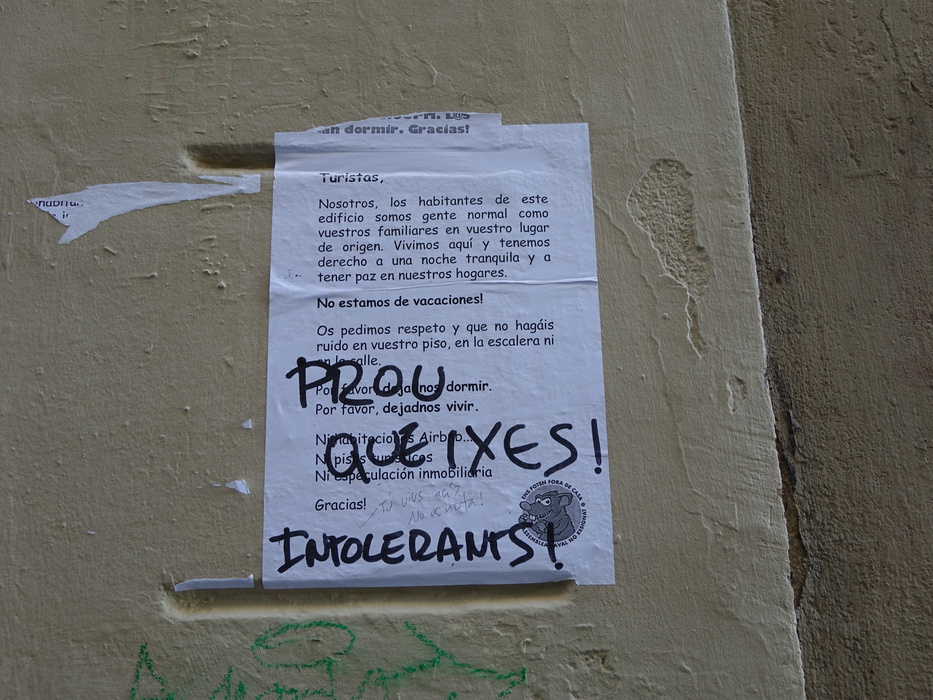 dormir. Gracias!
Turistas,
Nosotros, los habitantes de este
edificio somos gente normal como
vuestros familiares en vuestro lugar
de origen. Vivimos aquí y tenemos
derecho a una noche tranquila y a
tener paz en nuestros hogares.
No estamos de vacaciones!
Os pedimos respeto y que no hagáis
ruido en vuestro piso, en la escalera ni
en la calle.
PROU
Por favor, dejadnos dormir.
Por favor, dejadnos vivir.
QUEIXES!
Ni habitaciones Airbnb...
Ni pisos turísticos
Ni especulación inmobiliaria
Gracias!
Tú vivs acá?
No es nota!
ENS FOTEN FORA DE CASA
ASSEMBLEA RAVAL NO RESIGNAT
INTOLERANTS!